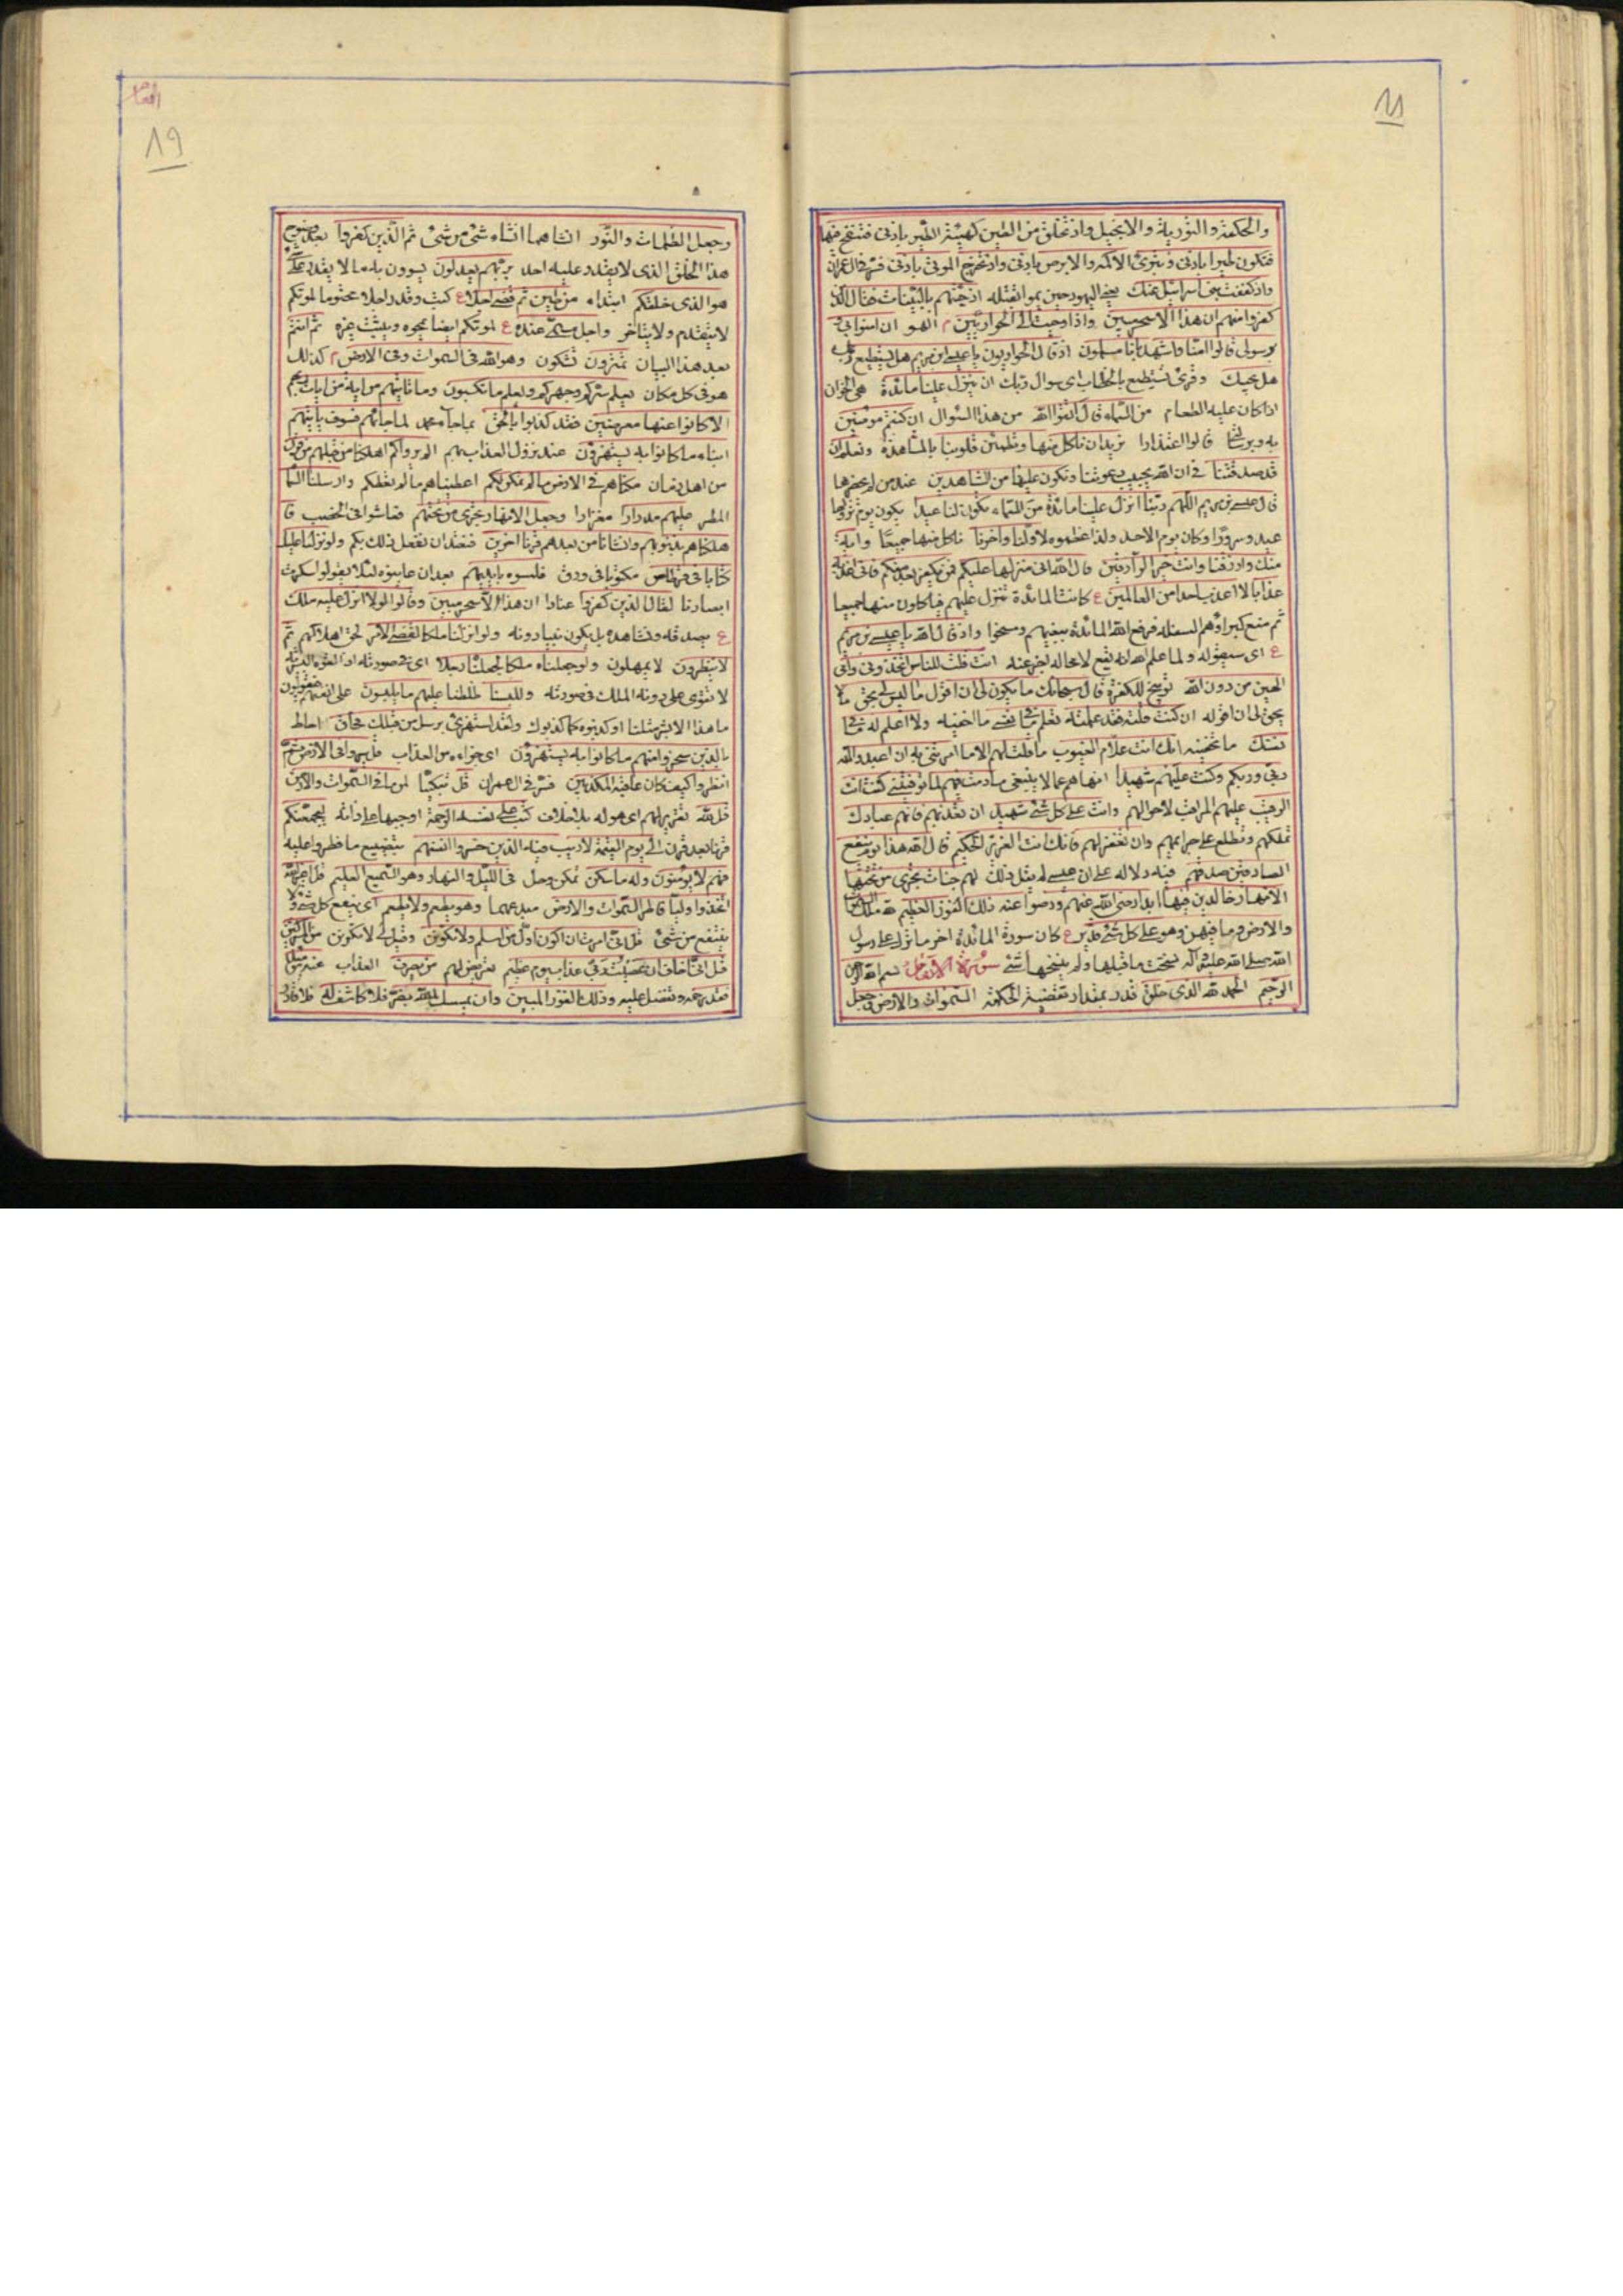 والحكمة والتورية والانجيل واذ تخلق من الطين كهيئة الطير باذنى فتنفخ فيها
فتكون طيرا باذنى وتبرئ الاكمه والابرص باذنى واذ تخرج الموتى باذنى فسر فى ال عمران
واذ كففت بنى اسرائيل عنك يعنى اليهود حين هموا بقتله اذ جئتهم بالبينات فقال الذين
كفروا منهم ان هذا الا سحر مبين واذ اوحيت الى الحواريين م الهموا ان امنوا بى و
برسولى قالوا امنا واشهد باننا مسلمون اذ قال الحواريون يا عيسى ابن مريم هل يستطيع ربك
هل يجيبك وقرئ تستطيع بالخطاب اى سوال ربك ان ينزل علينا مائدة هى الخوان
اذا كان عليه الطعام من السماء قال اتقوا الله من هذا السوال ان كنتم مومنين
به وبرسالتى قالوا اعتذارا نريد ان ناكل منها وتطمئن قلوبنا بالمشاهدة ونعلم ان
قد صدقتنا فى ان الله يجيب دعوتنا ونكون عليها من الشاهدين عند من لم يحضرها
قال عيسى بن مريم اللهم ربنا انزل علينا مائدة من السماء تكون لنا عيدا يكون يوم نزولها
عيد وسرورا وكان يوم الاحد ولذا عظموه لاولنا واخرنا ناكل منها جميعا واية
منك وارزقنا وانت خير الرازقين قال الله انى منزلها عليكم فمن يكفر بعد منكم فانى اعذبه
عذابا لا اعذبه احدا من العالمين ع كانت المائدة تنزل عليهم فياكلون منها جميعا
ثم منع كبراؤهم السفلة فرفع الله المائدة ببغيهم ومسخوا واذ قال الله يا عيسى بن مريم
ع اى سيقوله ولما علم الله انه يقع لا محالة اخبر عنه انت قلت للناس اتخذونى وامى
الهين من دون الله توبيخ للكفرة قال سبحانك ما يكون لى ان اقول ما ليس لى بحق ما لا
يحق لى ان اقوله ان كنت قلته فقد علمته تعلم ما فى نفسى ما اخفيه ولا اعلم ما فى
نفسك ما تخفيه انك انت علام الغيوب ما قلت لهم الا ما امرتنى به ان اعبدوا الله
ربى وربكم وكنت عليهم شهيدا انهاهم عما لا ينبغى ما دمت فيهم فلما توفيتنى كنت انت
الرقيب عليهم المراقب لاحوالهم وانت على كل شئ شهيد ان تعذبهم فانهم عبادك
تملكهم وتطلع على جرائمهم وان تغفر لهم فانك انت العزيز الحكيم قال الله هذا يوم ينفع
الصادقين صدقهم فيه دلالة على ان عيسى لم يقل ذلك لهم جنات تجرى من تحتها
الانهار خالدين فيها ابدا رضى الله عنهم ورضوا عنه ذلك الفوز العظيم لله ملك السموات
والارض وما فيهن وهو على كل شئ قدير ع كان سورة المائدة اخر ما نزل على رسول
الله صلى الله عليه واله نسخت ما قبلها ولم ينسخها شئ سورة الانعام بسم الله الرحمن
الرحيم الحمد لله الذى خلق قدر بمقدار تقتضيه الحكمة السموات والارض وجعل
انعام
٨٩
وجعل الظلمات والنور انشاهما انشاء شئ من شئ ثم الذين كفروا بعد وضوح
هذا الخلق الذى لا يقدر عليه احد بربهم يعدلون يسوون به ما لا يقدر على
هو الذى خلقكم ابتداء من طين ثم قضى اجلا ع كتب وقدر اجلا محتوما لموتكم
لا يتقدم ولا يتاخر واجل مسمى عنده ع لموتكم ايضا يمحوه ويثبت غيره ثم انتم
بعد هذا البيان تمترون تشكون وهو الله فى السموات وفى الارض م كذلك
هو فى كل مكان يعلم سركم وجهركم ويعلم ما تكسبون وما تاتيهم من اية من ايات ربهم
الا كانوا عنها معرضين فقد كذبوا بالحق بما جاء محمد لما جائهم فسوف ياتيهم
انباء ما كانوا به يستهزؤن عند نزول العذاب بهم الم يروا كم اهلكنا من قبلهم من قرن
من اهل زمان مكناهم فى الارض ما لم نمكن لكم اعطيناهم ما لم نعطكم وارسلنا السماء
المطر عليهم مدرارا مغزارا وجعل الانهار تجرى من تحتهم فعاشوا فى الخصب فا
هلكناهم بذنوبهم وانشانا من بعدهم قرنا اخرين فنقدر ان نفعل ذلك بكم ولو نزلنا عليك
كتابا فى قرطاس مكتوبا فى ورق فلمسوه بايديهم بعد ان عاينوه لئلا يقولوا سكرت
ابصارنا لقال الذين كفروا عنادا ان هذا الا سحر مبين وقالوا لولا انزل عليه ملك
ع يصدقه ونشاهده بل يكون نبيا دونه ولو انزلنا ملكا لقضى الامر لحق اهلاكهم ثم
لا ينظرون لا يمهلون ولو جعلناه ملكا لجعلناه رجلا اى فى صورته اذ القوة البشرية
لا تقوى على روية الملك فى صورته وللبسنا لخلطنا عليهم ما يلبسون على انفسهم فيقولون
ما هذا الا بشر مثلنا او كذبوه كما كذبوك ولقد استهزئ برسل من قبلك فحاق احاط
بالذين سخروا منهم ما كانوا به يستهزؤن اى جزاءه من العذاب قل سيروا فى الارض ثم
انظروا كيف كان عاقبة المكذبين فسر فى ال عمران قل تبكيتا لمن ما فى السموات والارض
قل لله تقرير لهم اى هو له بلا خلاف كتب على نفسه الرحمة اوجبها على ذاته ليجمعنكم
قرنا بعد قرن الى يوم القيمة لا ريب فيه الذين خسروا انفسهم بتضييع ما فطروا عليه
فهم لا يومنون وله ما سكن تمكن وحل فى الليل والنهار وهو السميع العليم قل اغير الله
اتخذ وليا فاطر السموات والارض مبدعهما وهو يطعم ولا يطعم اى ينفع كل شئ ولا
ينتفع من شئ قل انى امرت ان اكون اول من اسلم ولا تكونن وقيل لى لا تكونن من المشركين
قل انى اخاف ان عصيت ربى عذاب يوم عظيم تعريض لهم من يصرف العذاب عنه يومئذ
فقد رحمه وتفضل عليه وذلك الفوز المبين وان يمسسك الله بضر فلا كاشف له فلا قادر